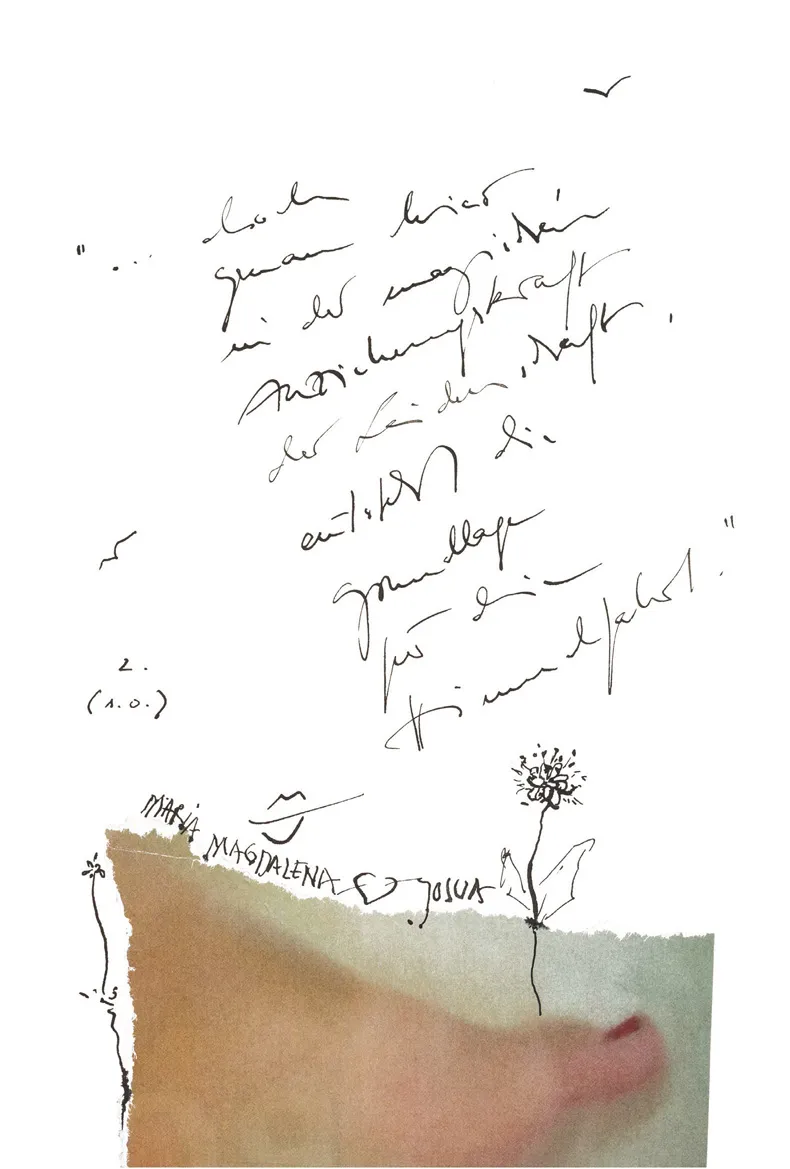 "... doch
genau hier
in der magischen
Anziehungskraft
der Leidenschaft
entsteht die
Grundlage
für
Himmelfahrt."
2.
(s.o.)
MARIA
MAGDALENA ♡ JOSUA